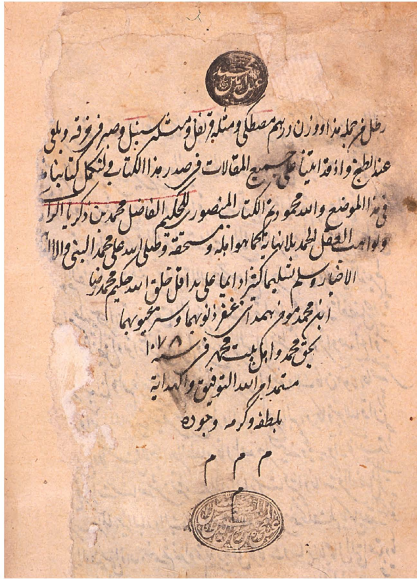 رطل من جملة هذا ووزن درهم مصطكى ومثله قرنفل ومثله سنبل وصير فى خرقة ويلقى
عند الطبخ واذ قد اتينا على جميع المقالات فى صدر هذا الكتاب فلنكمل كتابنا
فى هذا الموضع والله محمود تم الكتاب المنصورى للحكيم الفاضل محمد بن زكريا الرا
ولواهب العقل الحمد بلا نهاية كما هو اهله ومستحقه وصلى الله على محمد النبى و
الاخيار وسلم تسليما كثيرا دايما على يد اقل خلق الله حكيم محمد رضا
ابن محمد مومن غفر ذنوبهما وستر عيوبهما
بحق محمد واهل بيت محمد فى سنه ١٠٧٨
مستمدا من الله التوفيق والهداية
بلطفه وكرمه وجوده
م م م